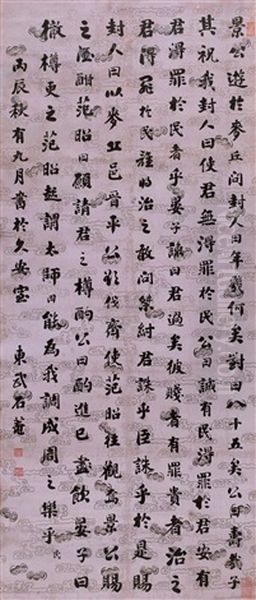 景公遊於麥丘問封人曰年幾何矣對曰八十五矣公曰壽哉子
其祝我封人曰使君無得罪於民公曰誠有民得罪於君安有
君得罪於民者乎晏子諫曰君過矣彼賤者有罪貴者治之
君得罪於民誰將治之敢問桀紂君誅乎臣誅乎於是賜
封人曰以麥丘邑晉平公欲伐齊使范昭往觀焉景公賜
之酒酣范昭曰願請君之樽酌公曰酌進已盡飲晏子曰
徹樽更之范昭趨謂太師曰能為我調成周之樂乎民
丙辰秋有九月書於久安室
東武石菴